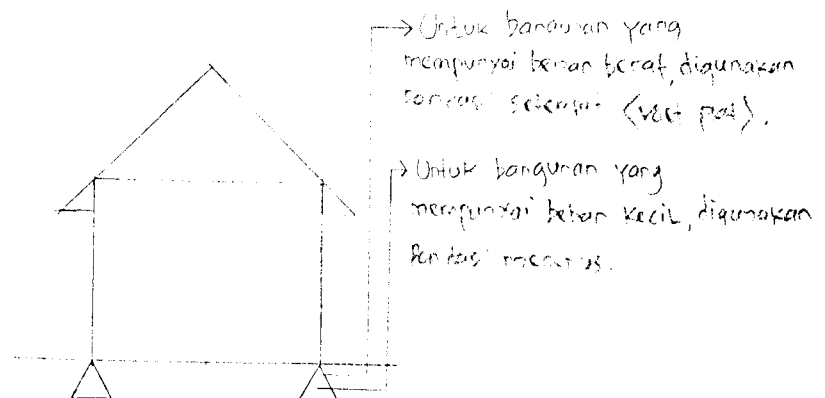 Untuk bangunan yang
mempunyai beban berat, digunakan
fondasi setempat
Untuk bangunan yang
mempunyai beban kecil, digunakan
fondasi menerus.